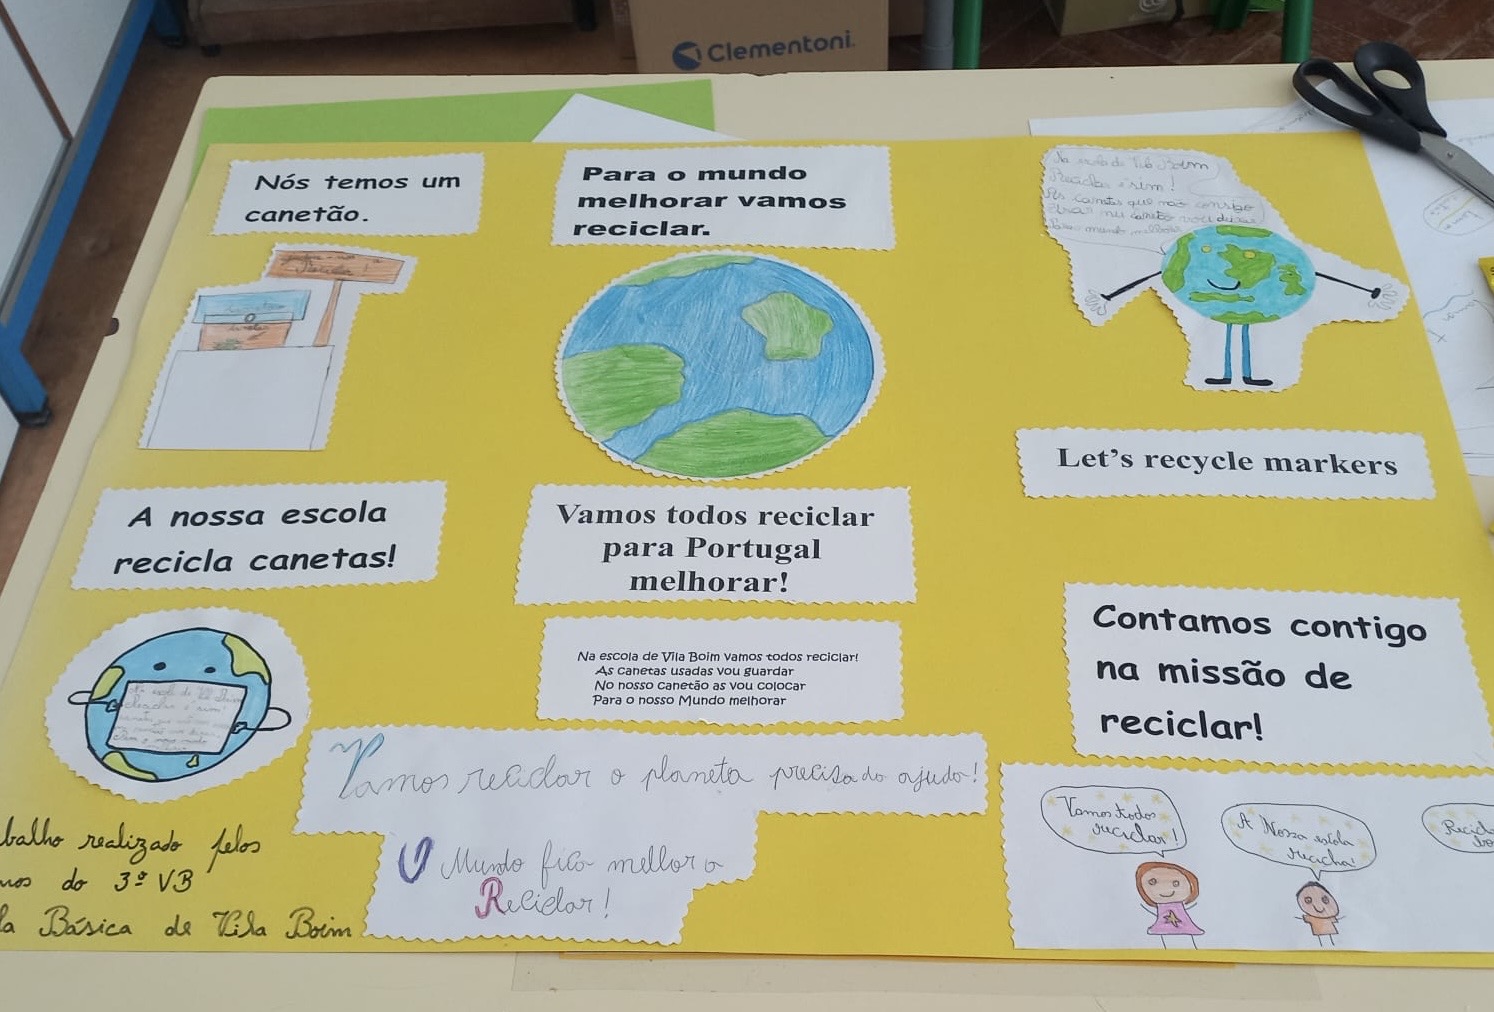 Clementoni
Nós temos um
canetão.
Para o mundo
melhorar vamos
reciclar.
Na escola de Vila Boim
Reciclar é sim!
As canetas que não consigo
Let's recycle markers
A nossa escola
recicla canetas!
Vamos todos reciclar
para Portugal
melhorar!
Na escola de Vila Boim vamos todos reciclar!
As canetas usadas vou guardar
No nosso canetão as vou colocar
Para o nosso Mundo melhorar
Contamos contigo
na missão de
reciclar!
Na escola de Vila Boim
Reciclar é sim!
Vamos reciclar o planeta precisa do ajuda!
O Mundo fica melhor a
Reciclar!
Vamos todos
reciclar!
A Nossa escola
balho realizado pelos
nos do 3º VB
la Básica de Vila Boim